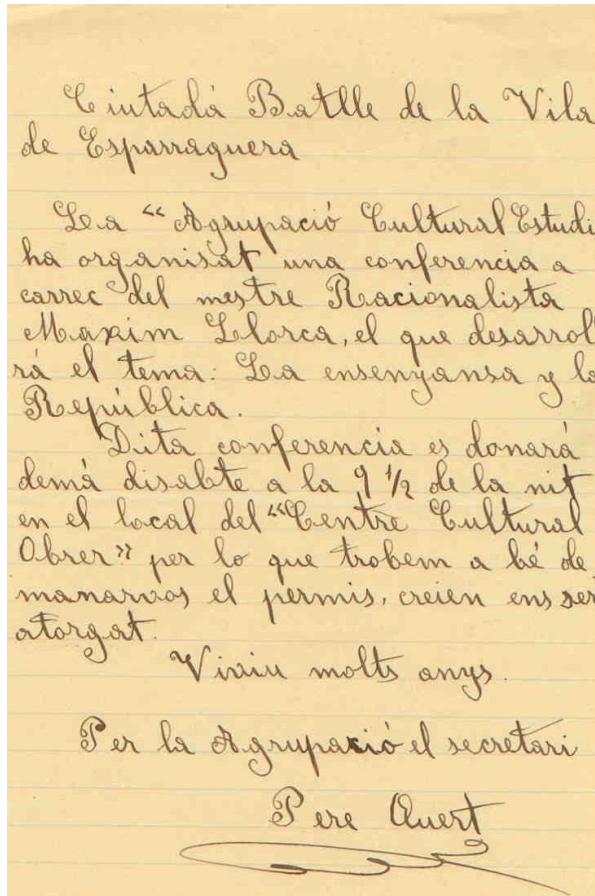 Ciutadá Batlle de la Vila
de Esparraguera
La “Agrupació Cultural Estudi
ha organisat una conferencia a
carrec del mestre Racionalista
Maxim Llorca, el que desarrol
rá el tema: La ensenyansa y la
República.
Dita conferencia es donará
demá disabte a la 9 1/2 de la nit
en el local del “Centre Cultural
Obrer” per lo que trobem a bé de
manarvos el permis, creien ens ser
atorgat.
Viviu molts anys.
Per la Agrupació el secretari
Pere Quert